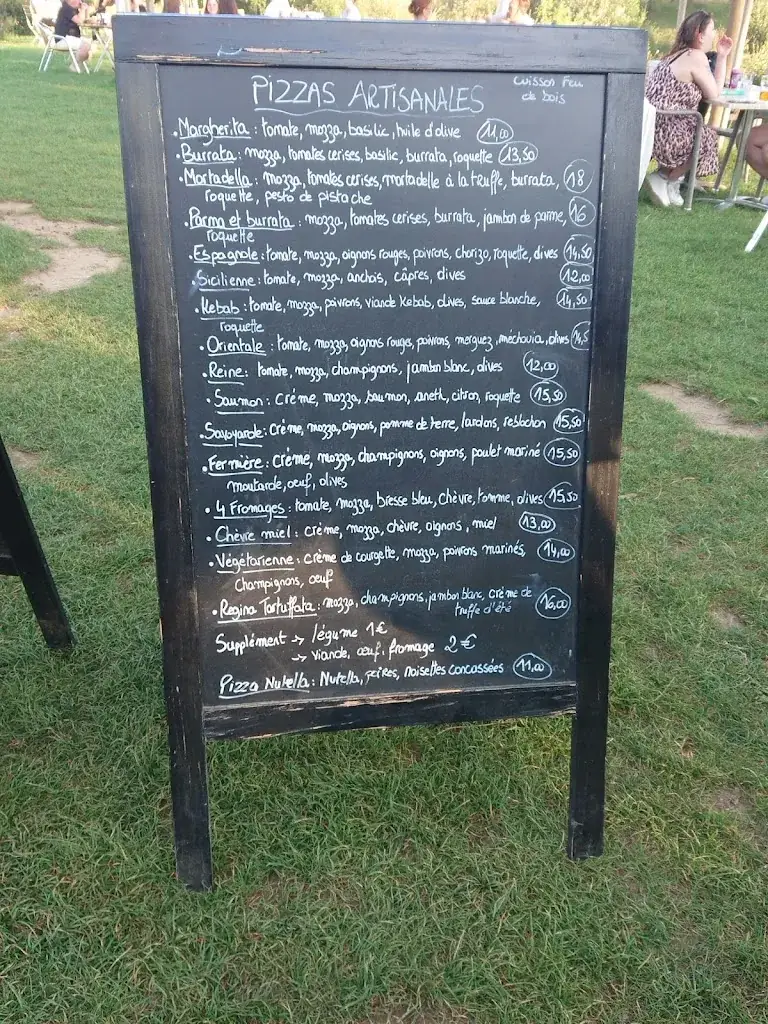 PIZZAS ARTISANALES
Cuisson Feu
de bois
• Margherita : tomate, mozza, basilic, huile d'olive 11,00
• Burrata : mozza, tomates cerises, basilic, burrata, roquette 13,50
• Mortadella : mozza, tomates cerises, mortadelle à la truffe, burrata, 18
roquette, pesto de pistache
• Parma et burrata : mozza, tomates cerises, burrata, jambon de parme, 16
roquette
• Espagnole : tomate, mozza, oignons rouges, poivrons, chorizo, roquette, olives 14,50
• Sicilienne : tomate, mozza, anchois, câpres, olives 12,00
• Kebab : tomate, mozza, poivrons, viande kebab, olives, sauce blanche, 14,50
roquette
• Orientale : tomate, mozza, oignons rouges, poivrons, merguez, méchouia, olives 14,5
• Reine : tomate, mozza, champignons, jambon blanc, olives 12,00
• Saumon : Crème, mozza, saumon, aneth, citron, roquette 15,50
• Savoyarde : Crème, mozza, oignons, pomme de terre, lardons, reblochon 15,50
• Fermière : crème, mozza, champignons, oignons, poulet mariné 15,50
moutarde, oeuf, olives
• 4 Fromages : tomate, mozza, bresse bleu, chèvre, tomme, olives 15,50
• Chèvre miel : crème, mozza, chèvre, oignons, miel 13,00
• Végétarienne : crème de courgette, mozza, poivrons marinés, 14,00
champignons, oeuf
• Regina Tartuffata : mozza, champignons, jambon blanc, crème de 16,00
truffe d'été
Supplément → légume 1€
→ viande, oeuf, fromage 2€
Pizza Nutella : Nutella, poires, noisettes concassées 11,00